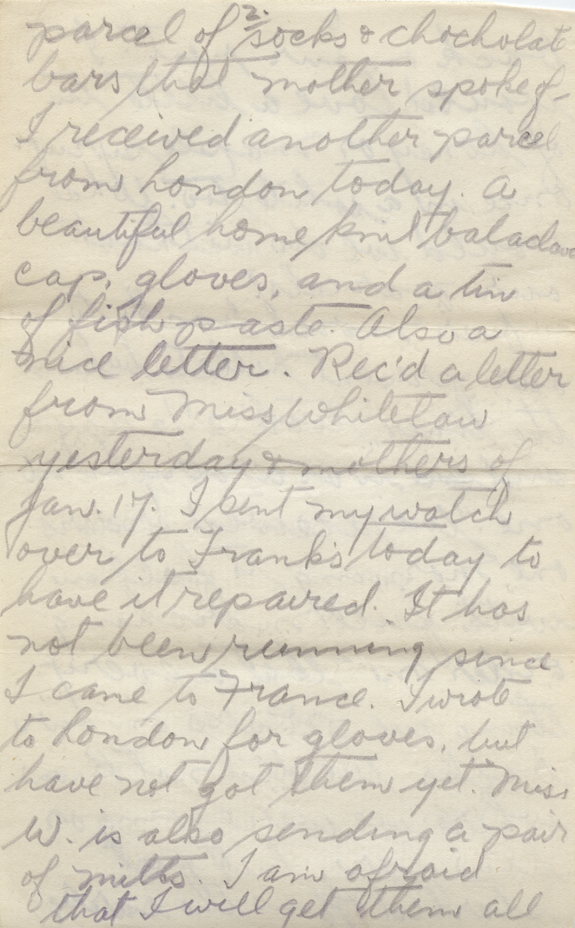 2.
parcel of socks & chocholate
bars that mother spoke of -
I received another parcel
from London today. A
beautiful home knit balaclava
cap, gloves, and a tin
of fish paste. Also a
nice letter. Rec'd a letter
from Miss Whitelaw
yesterday & mothers of
Jan. 17. I sent my watch
over to Frank's today to
have it repaired. It has
not been running since
I came to France. I wrote
to London for gloves, but
have not got them yet. Miss
W. is also sending a pair
of mitts. I am afraid
that I will get them all